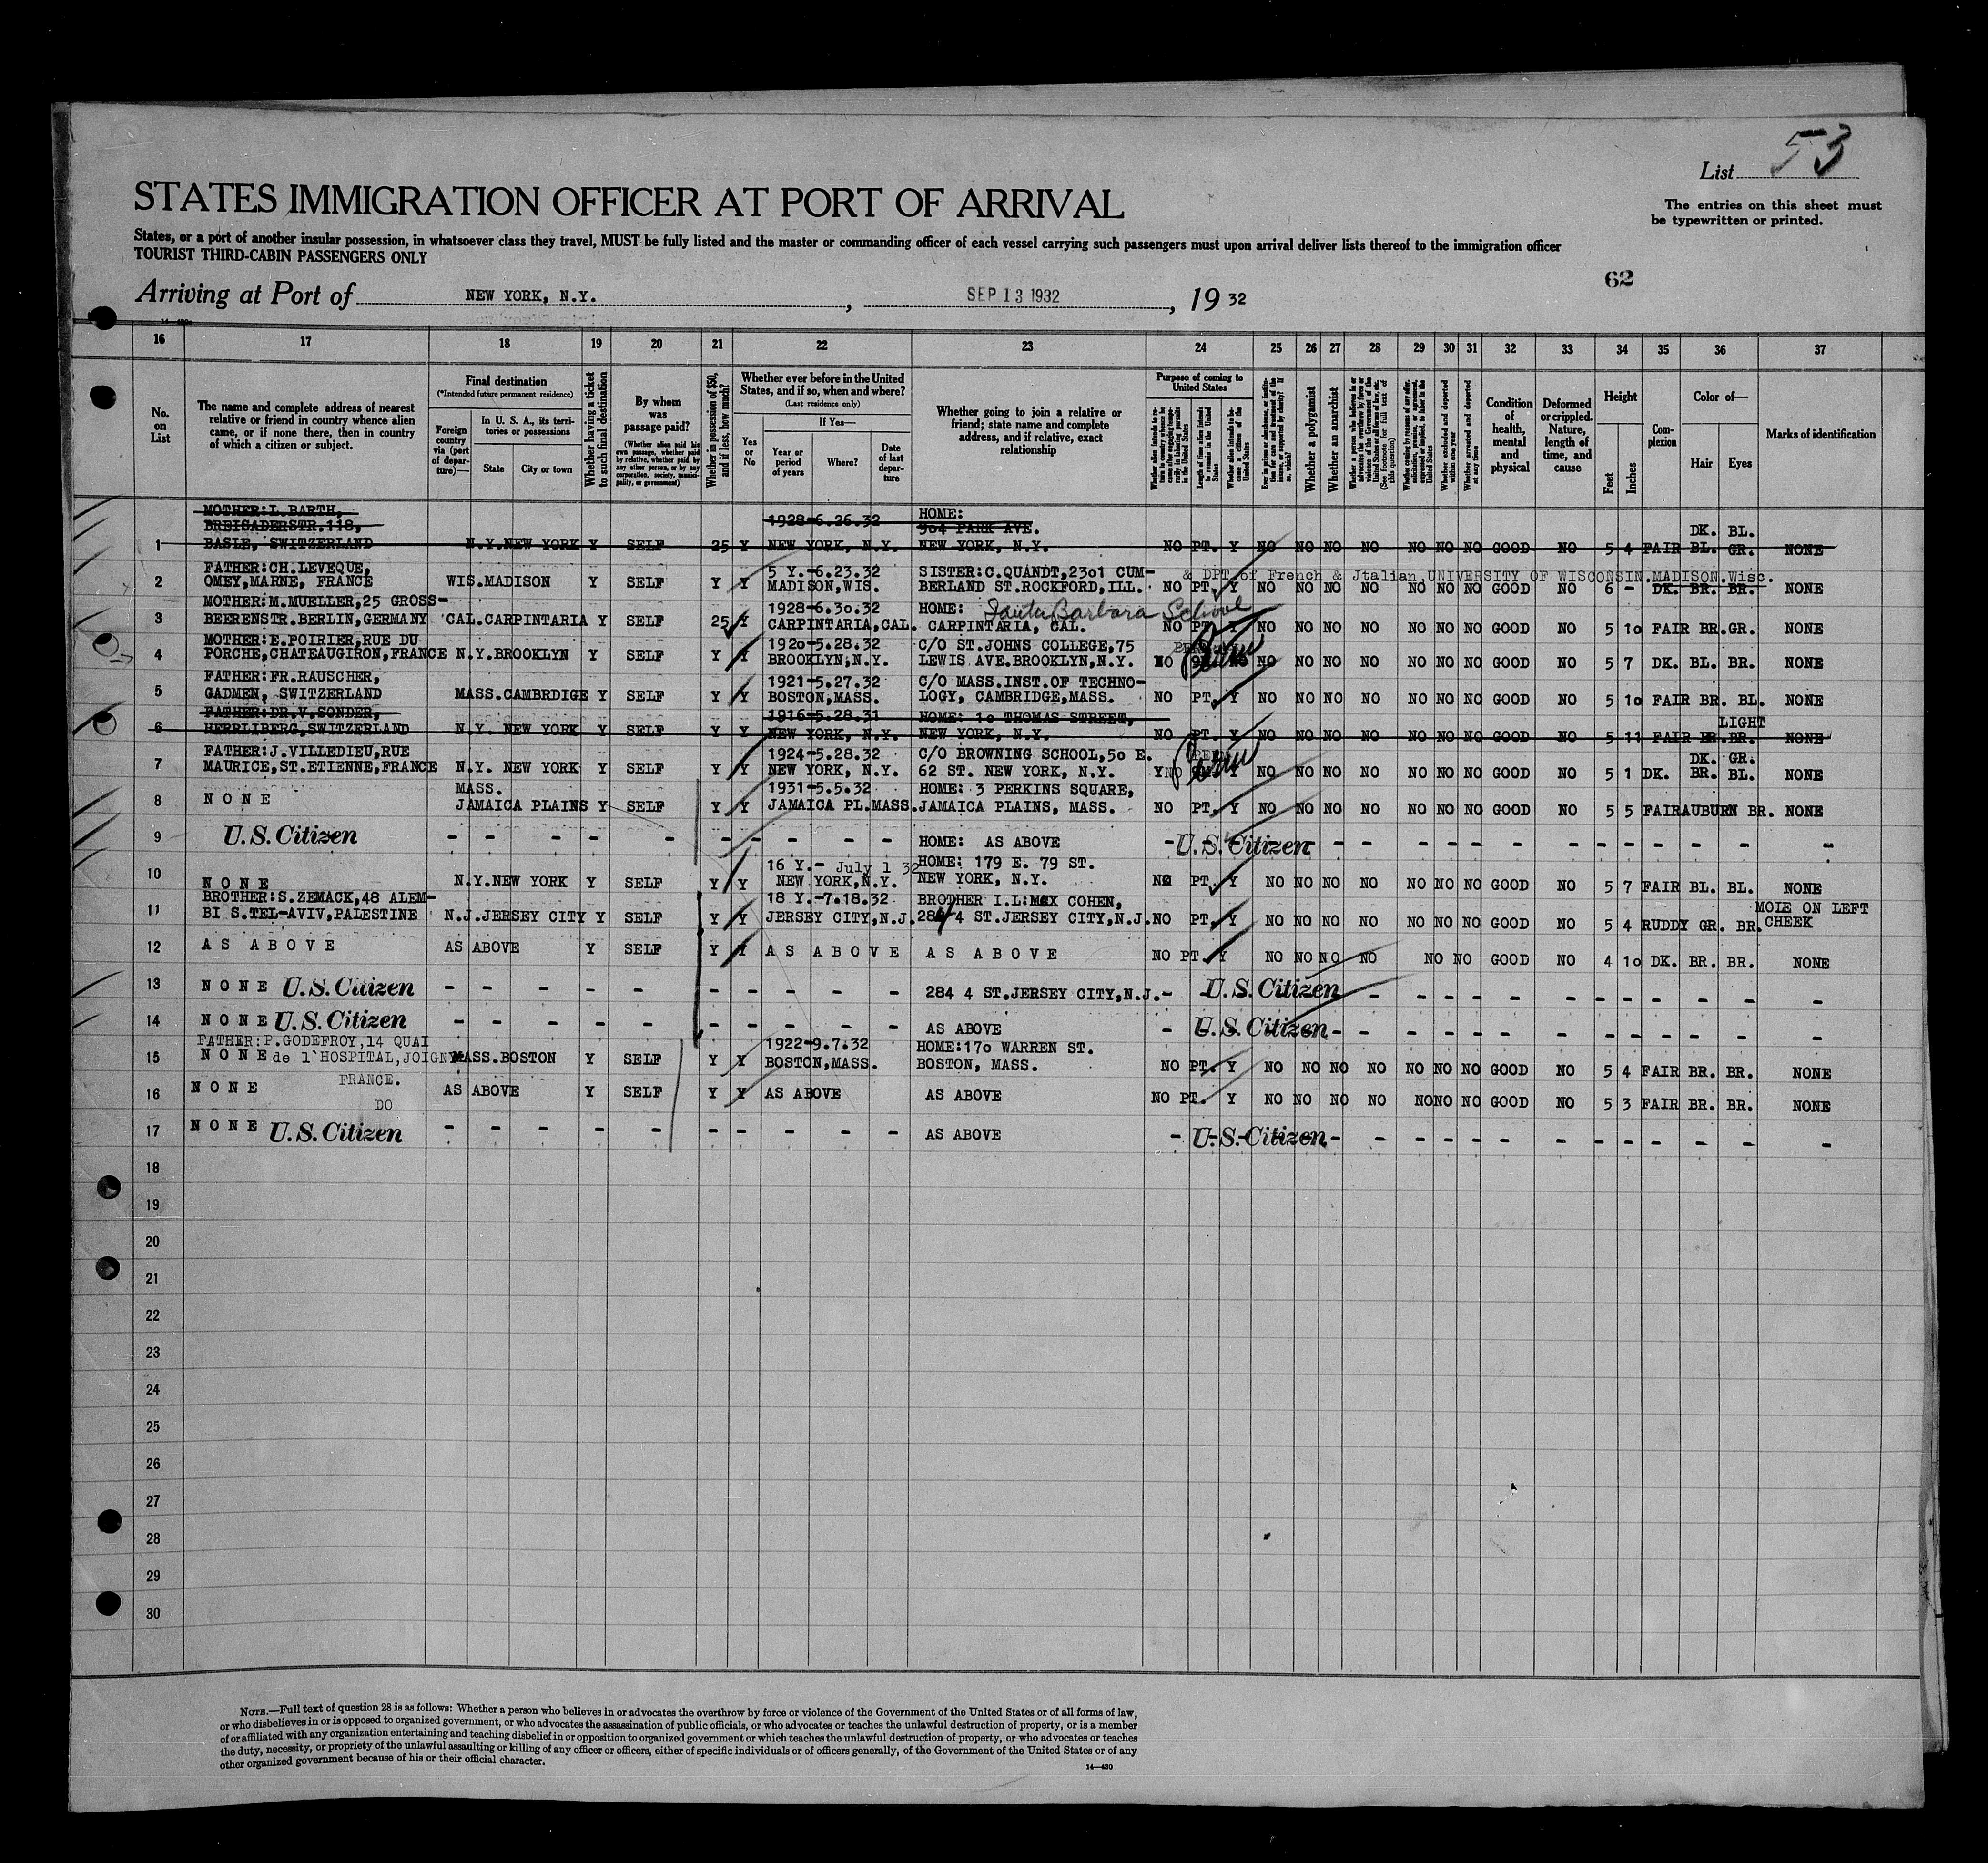 List 53
STATES IMMIGRATION OFFICER AT PORT OF ARRIVAL
The entries on this sheet must
be typewritten or printed.
States, or a port of another insular possession, in whatsoever class they travel, MUST be fully listed and the master or commanding officer of each vessel carrying such passengers must upon arrival deliver lists thereof to the immigration officer
TOURIST THIRD-CABIN PASSENGERS ONLY
62
Arriving at Port of NEW YORK, N.Y., SEP 13 1932, 19 32
16 17 18 19 20 21 22 23 24 25 26 27 28 29 30 31 32 33 34 35 36 37
No.
on
List
The name and complete address of nearest
relative or friend in country whence alien
came, or if none there, then in country
of which a citizen or subject.
Final destination
(*Intended future permanent residence)
Foreign
country
via (port
of depar-
ture)—
In U. S. A., its terri-
tories or possessions
State
City or town
Whether having a ticket
to such final destination
By whom
was
passage paid?
(Whether alien paid his
own passage, whether paid
by relative, whether paid by
any other person, or by any
corporation, society, munici-
pality, or government)
Whether in possession of $50,
and if less, how much?
Whether ever before in the United
States, and if so, when and where?
(Last residence only)
Yes
or
No
If Yes—
Year or
period
of years
Where?
Date
of last
depar-
ture
Whether going to join a relative or
friend; state name and complete
address, and if relative, exact
relationship
Purpose of coming to
United States
Length of time alien intends
to remain in the United
States
Whether alien intends to be-
come a citizen of the
United States
Whether a polygamist
Whether an anarchist
Whether excluded and deported
within one year
Whether arrested and deported
at any time
Condition
of
health,
mental
and
physical
Deformed
or crippled.
Nature,
length of
time, and
cause
Height
Feet
Inches
Com-
plexion
Color of—
Hair
Eyes
Marks of identification
MOTHER:L.BARTH, HOME:
BREISADERSTR.118, 1928-6.26.32 904 PARK AVE. DK. BL.
1 BASLE, SWITZERLAND N.Y.NEW YORK Y SELF 25 Y NEW YORK, N.Y. NEW YORK, N.Y. NO PT. Y NO NO NO NO NO NO NO GOOD NO 5 4 FAIR BL. GR. NONE
FATHER:CH.LEVEQUE, 5 Y.-6.23.32 SISTER:C.QUANDT,2301 CUM- & DPT of French & Jtalian UNIVERSITY OF WISCONSIN.MADISON.Wisc.
2 OMEY,MARNE, FRANCE WIS.MADISON Y SELF Y Y MADISON,WIS. BERLAND ST.ROCKFORD,ILL. NO PT. Y NO NO NO NO NO NO NO GOOD NO 6 - DK. BR. BR. NONE
MOTHER:M.MUELLER,25 GROSS- 1928-6.30.32 HOME: Santa Barbara School
3 BEERENSTR.BERLIN,GERMANY CAL.CARPINTARIA Y SELF 25 Y CARPINTARIA,CAL. CARPINTARIA, CAL. NO PT. Y NO NO NO NO NO NO NO GOOD NO 5 10 FAIR BR.GR. NONE
MOTHER:E.POIRIER,RUE DU 1920-5.28.32 C/O ST.JOHNS COLLEGE,75
4 PORCHE,CHATEAUGIRON,FRANCE N.Y.BROOKLYN Y SELF Y Y BROOKLYN,N.Y. LEWIS AVE.BROOKLYN,N.Y. NO Perm NO NO NO NO NO NO NO GOOD NO 5 7 DK. BL. BR. NONE
FATHER:FR.RAUSCHER, 1921-5.27.32 C/O MASS.INST.OF TECHNO-
5 GADMEN, SWITZERLAND MASS.CAMBRDIGE Y SELF Y Y BOSTON,MASS. LOGY, CAMBRIDGE,MASS. NO PT. Y NO NO NO NO NO NO NO GOOD NO 5 10 FAIR BR. BL. NONE
FATHER:DR.V.SONDER, 1916-5.28.31 HOME: 10 THOMAS STREET, LIGHT
6 HERRLIBERG,SWITZERLAND N.Y. NEW YORK Y SELF Y Y NEW YORK, N.Y. NEW YORK, N.Y. NO PT. Y NO NO NO NO NO NO NO GOOD NO 5 11 FAIR BR.BR. NONE
FATHER:J.VILLEDIEU,RUE 1924-5.28.32 C/O BROWNING SCHOOL,50 E. DK. GR.
7 MAURICE,ST.ETIENNE,FRANCE N.Y. NEW YORK Y SELF Y Y NEW YORK, N.Y. 62 ST. NEW YORK, N.Y. YNO Perm Y NO NO NO NO NO NO NO GOOD NO 5 1 DK. BR. BL. NONE
MASS. 1931-5.5.32 HOME: 3 PERKINS SQUARE,
8 NONE JAMAICA PLAINS Y SELF Y Y JAMAICA PL.MASS. JAMAICA PLAINS, MASS. NO PT. Y NO NO NO NO NO NO NO GOOD NO 5 5 FAIR AUBURN BR. NONE
9 U.S. Citizen - - - - - - - - - - HOME: AS ABOVE - U.S. Citizen - - - - - - - - - - - - -
16 Y.- July 1 32 HOME: 179 E. 79 ST.
10 NONE N.Y.NEW YORK Y SELF Y Y NEW YORK,N.Y. NEW YORK, N.Y. NO PT. Y NO NO NO NO NO NO NO GOOD NO 5 7 FAIR BL. BL. NONE
BROTHER:S.ZEMACK,48 ALEM- 18 Y.-7.18.32 BROTHER I.L:MAX COHEN, MOLE ON LEFT
11 BI S.TEL-AVIV,PALESTINE N.J.JERSEY CITY Y SELF Y Y JERSEY CITY,N.J. 284 4 ST.JERSEY CITY,N.J. NO PT. Y NO NO NO NO NO NO NO GOOD NO 5 4 RUDDY GR. BR. CHEEK
12 AS ABOVE AS ABOVE Y SELF Y Y AS ABOVE AS ABOVE NO PT. Y NO NO NO NO NO NO GOOD NO 4 10 DK. BR. BR. NONE
13 NONE U.S. Citizen - - - - - - - - - - 284 4 ST.JERSEY CITY,N.J. - U.S. Citizen - - - - - - - - - - - -
14 NONE U.S. Citizen - - - - - - - - - - AS ABOVE - U.S. Citizen - - - - - - - - - - - - -
FATHER:P.GODEFROY,14 QUAI 1922-9.7.32 HOME:170 WARREN ST.
15 NONE de l'HOSPITAL,JOIGNY MASS.BOSTON Y SELF Y Y BOSTON,MASS. BOSTON, MASS. NO PT. Y NO NO NO NO NO NO NO GOOD NO 5 4 FAIR BR. BR. NONE
FRANCE.
16 NONE DO AS ABOVE Y SELF Y Y AS ABOVE AS ABOVE NO PT. Y NO NO NO NO NO NO NO GOOD NO 5 3 FAIR BR. BR. NONE
17 NONE U.S. Citizen - - - - - - - - - - AS ABOVE - U.S. Citizen - - - - - - - - - - - - -
18
19
20
21
22
23
24
25
26
27
28
29
30
NOTE.—Full text of question 28 is as follows: Whether a person who believes in or advocates the overthrow by force or violence of the Government of the United States or of all forms of law,
or who disbelieves in or is opposed to organized government, or who advocates the assassination of public officials, or who advocates or teaches the unlawful destruction of property, or is a member
of or affiliated with any organization entertaining and teaching disbelief in or opposition to organized government or which teaches the unlawful destruction of property, or who advocates or teaches
the duty, necessity, or propriety of the unlawful assaulting or killing of any officer or officers, either of specific individuals or of officers generally, of the Government of the United States or of any
other organized government because of his or their official character.
14—430